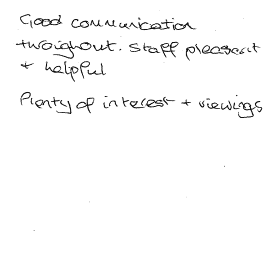 Good communication
throughout. Staff pleasant
+ helpful
Plenty of interest + viewings